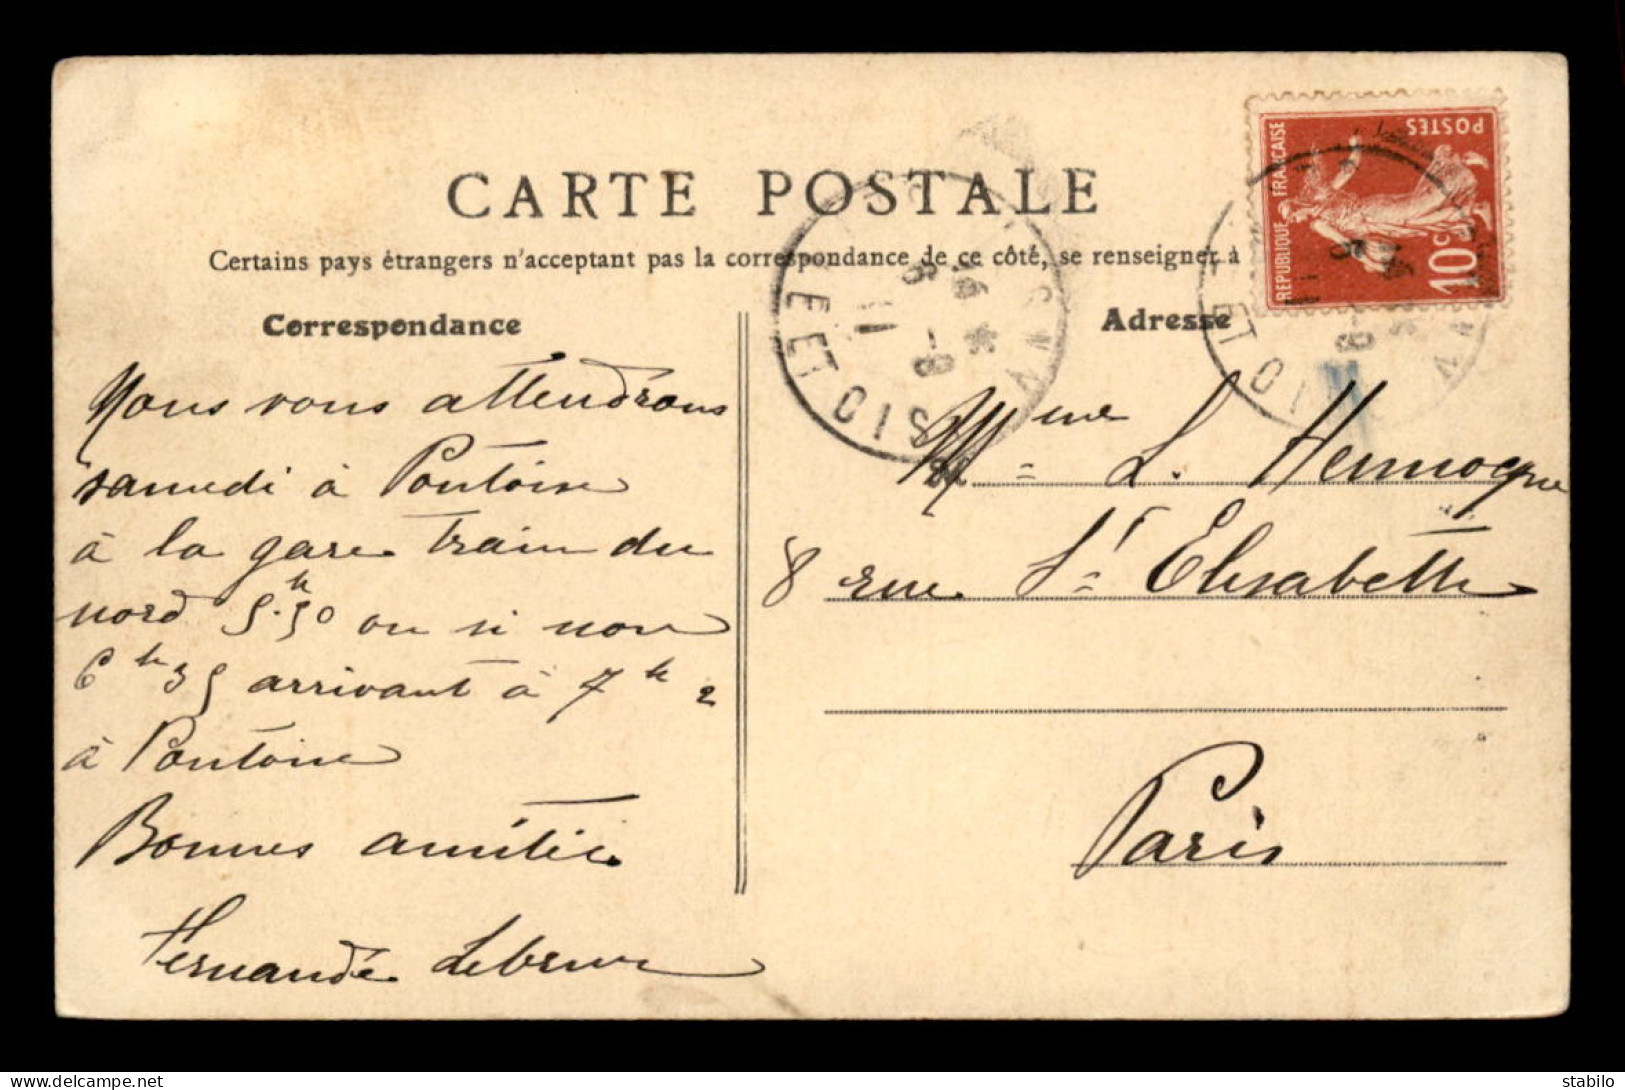 CARTE POSTALE
Certains pays étrangers n'acceptant pas la correspondance de ce côté, se renseigner à
Correspondance
Adresse
REPUBLIQUE FRANÇAISE
POSTES
10c
11
Nous vous attendrons
samedi à Pontoise
à la gare train du
nord 5.h50 ou si non
6h35 arrivant à 7h 2
à Pontoise
Bonnes amitiés
Fernande Lebrun
Mme L. Hermogne
8 rue St Elisabeth
Paris
delcampe.net
stabilo